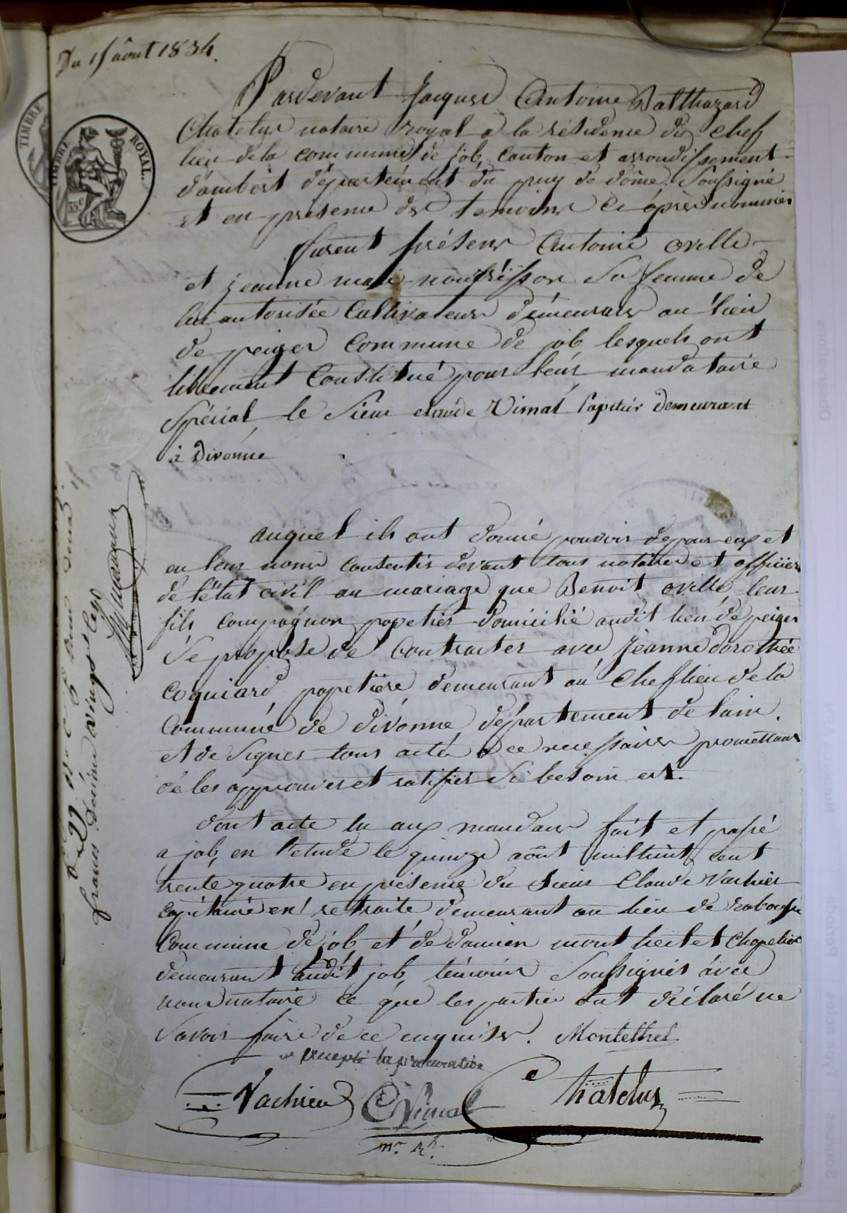 Du 15 août 1834.
TIMBRE
TIMBRE ROYAL.
Pardevant Jacques Antoine Balthazard
Chatelus notaire royal a la résidence du chef
lieu de la commune de job, canton et arrondissement
d'ambert département du puy de dôme, Soussigné
et en présence des temoins ci apres nommés
furent présens Antoine ovelle
et jeanne marie nourrisson Sa femme de
lui autorisée Cultivateurs demeurans au lieu
de peiger commune de job lesquels ont
librement Constitué pour leur mandataire
Spécial, le Sieur Vimal papetier demeurant
à Divonne
auquel ils ont donné pouvoir de pour eux et
en leur nom consentir devant tous notaires et officiers
de l'état civil au mariage que Benoit ovelle leur
fils compagnon papetier domicilié audit lieu de peiger
Se propose de Contracter avec Jeanne dorothée
Coquiard papetière demeurant au Cheflieu de la
Commune de divonne département de lain,
et de Signer tous actes a ce necessaires promettans
de les approuver et ratifier Si besoin est.
dont acte lu aux mandans fait et passé
a job, en l'etude le quinze août mil huit cent
trente quatre en présence du Sieur Claude Vachier
Capitaine en retraite demeurant au lieu de
Commune de job et de damien montheilet Chapelier
demeurant audit job temoins Soussignés avec
nous notaire ce que les parties ont déclaré ne
Savoir faire de ce enquises. Montelhet
accepté la procuration
Vachier C Vimal Chatelus
nre Rl
francs décime vingt